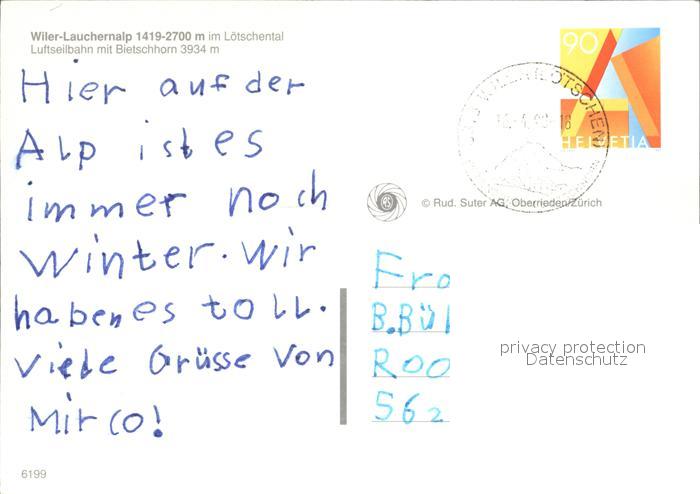 Wiler-Lauchernalp 1419-2700 m im Lötschental
Luftseilbahn mit Bietschhorn 3934 m
Hier auf der
Alp ist es
immer noch
Winter. Wir
haben es toll.
Viele Grüsse von
Mirco!
90
HELVETIA
© Rud. Suter AG, Oberrieden/Zürich
Fra
B.Bül
Roo
562
privacy protection
Datenschutz
6199